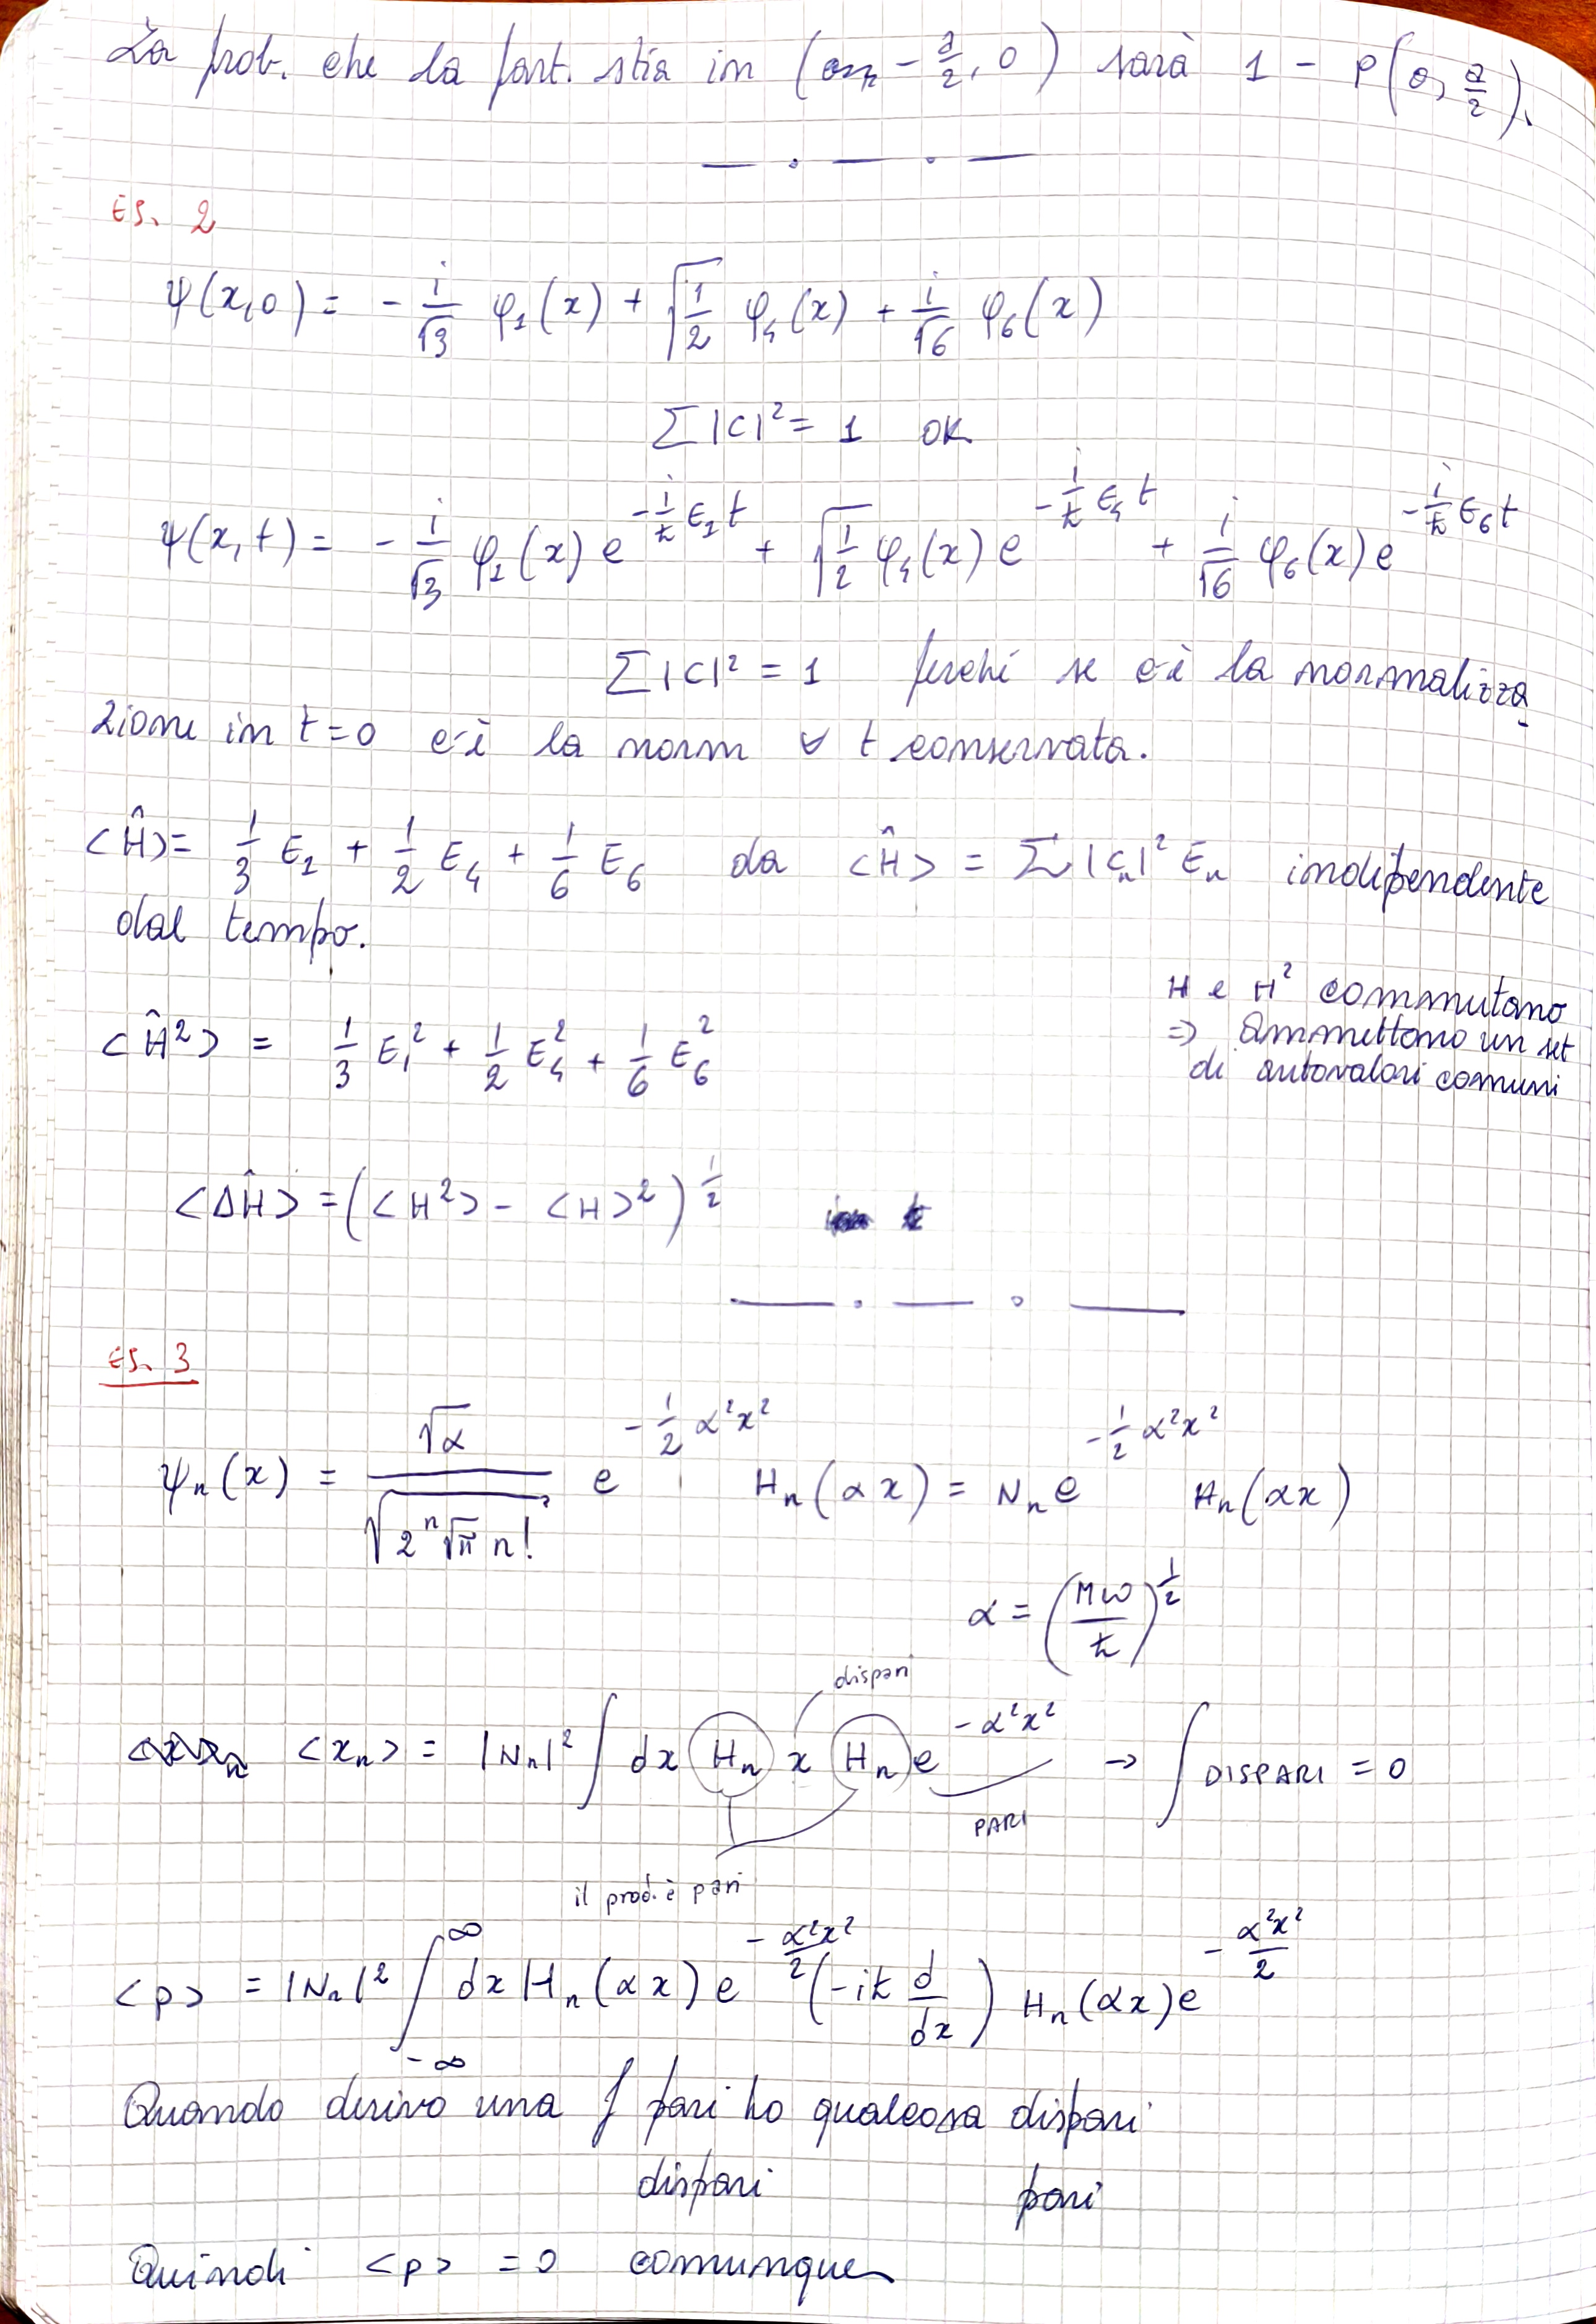 La prob. che la part. stia in (-a/2, 0) sarà 1 - P(0, a/2).
ES. 2
ψ(x,0) = - i/√3 φ₁(x) + √(1/2) φ₄(x) + i/√6 φ₆(x)
Σ|C|² = 1 OK
ψ(x,t) = - i/√3 φ₁(x) e^(-i/ħ E₁t) + √(1/2) φ₄(x) e^(-i/ħ E₄t) + i/√6 φ₆(x) e^(-i/ħ E₆t)
Σ|C|² = 1 perché se c'è la normalizza
zione in t=0 c'è la norm ∀ t conservata.
<Ĥ> = 1/3 E₁ + 1/2 E₄ + 1/6 E₆ da <Ĥ> = Σ|Cₙ|² Eₙ indipendente
dal tempo.
H e H² commutano
⇒ ammettono un set
di autovalori comuni
<Ĥ²> = 1/3 E₁² + 1/2 E₄² + 1/6 E₆²
<ΔĤ> = (<H²> - <H>²)^(1/2)
ES. 3
ψₙ(x) = √α / √(2ⁿ √π n!) e^(-1/2 α²x²) Hₙ(αx) = Nₙ e^(-1/2 α²x²) Hₙ(αx)
α = (Mω/ħ)^(1/2)
dispari
<xₙ> = |Nₙ|² ∫ dx Hₙ x Hₙ e^(-α²x²) → ∫ DISPARI = 0
PARI
il prod. è pari
<p> = |Nₙ|² ∫_(-∞)^∞ dx Hₙ(αx) e^(-α²x²/2) (-iħ d/dx) Hₙ(αx) e^(-α²x²/2)
Quando derivo una f pari ho qualcosa dispari
dispari pari
Quindi <p> = 0 comunque